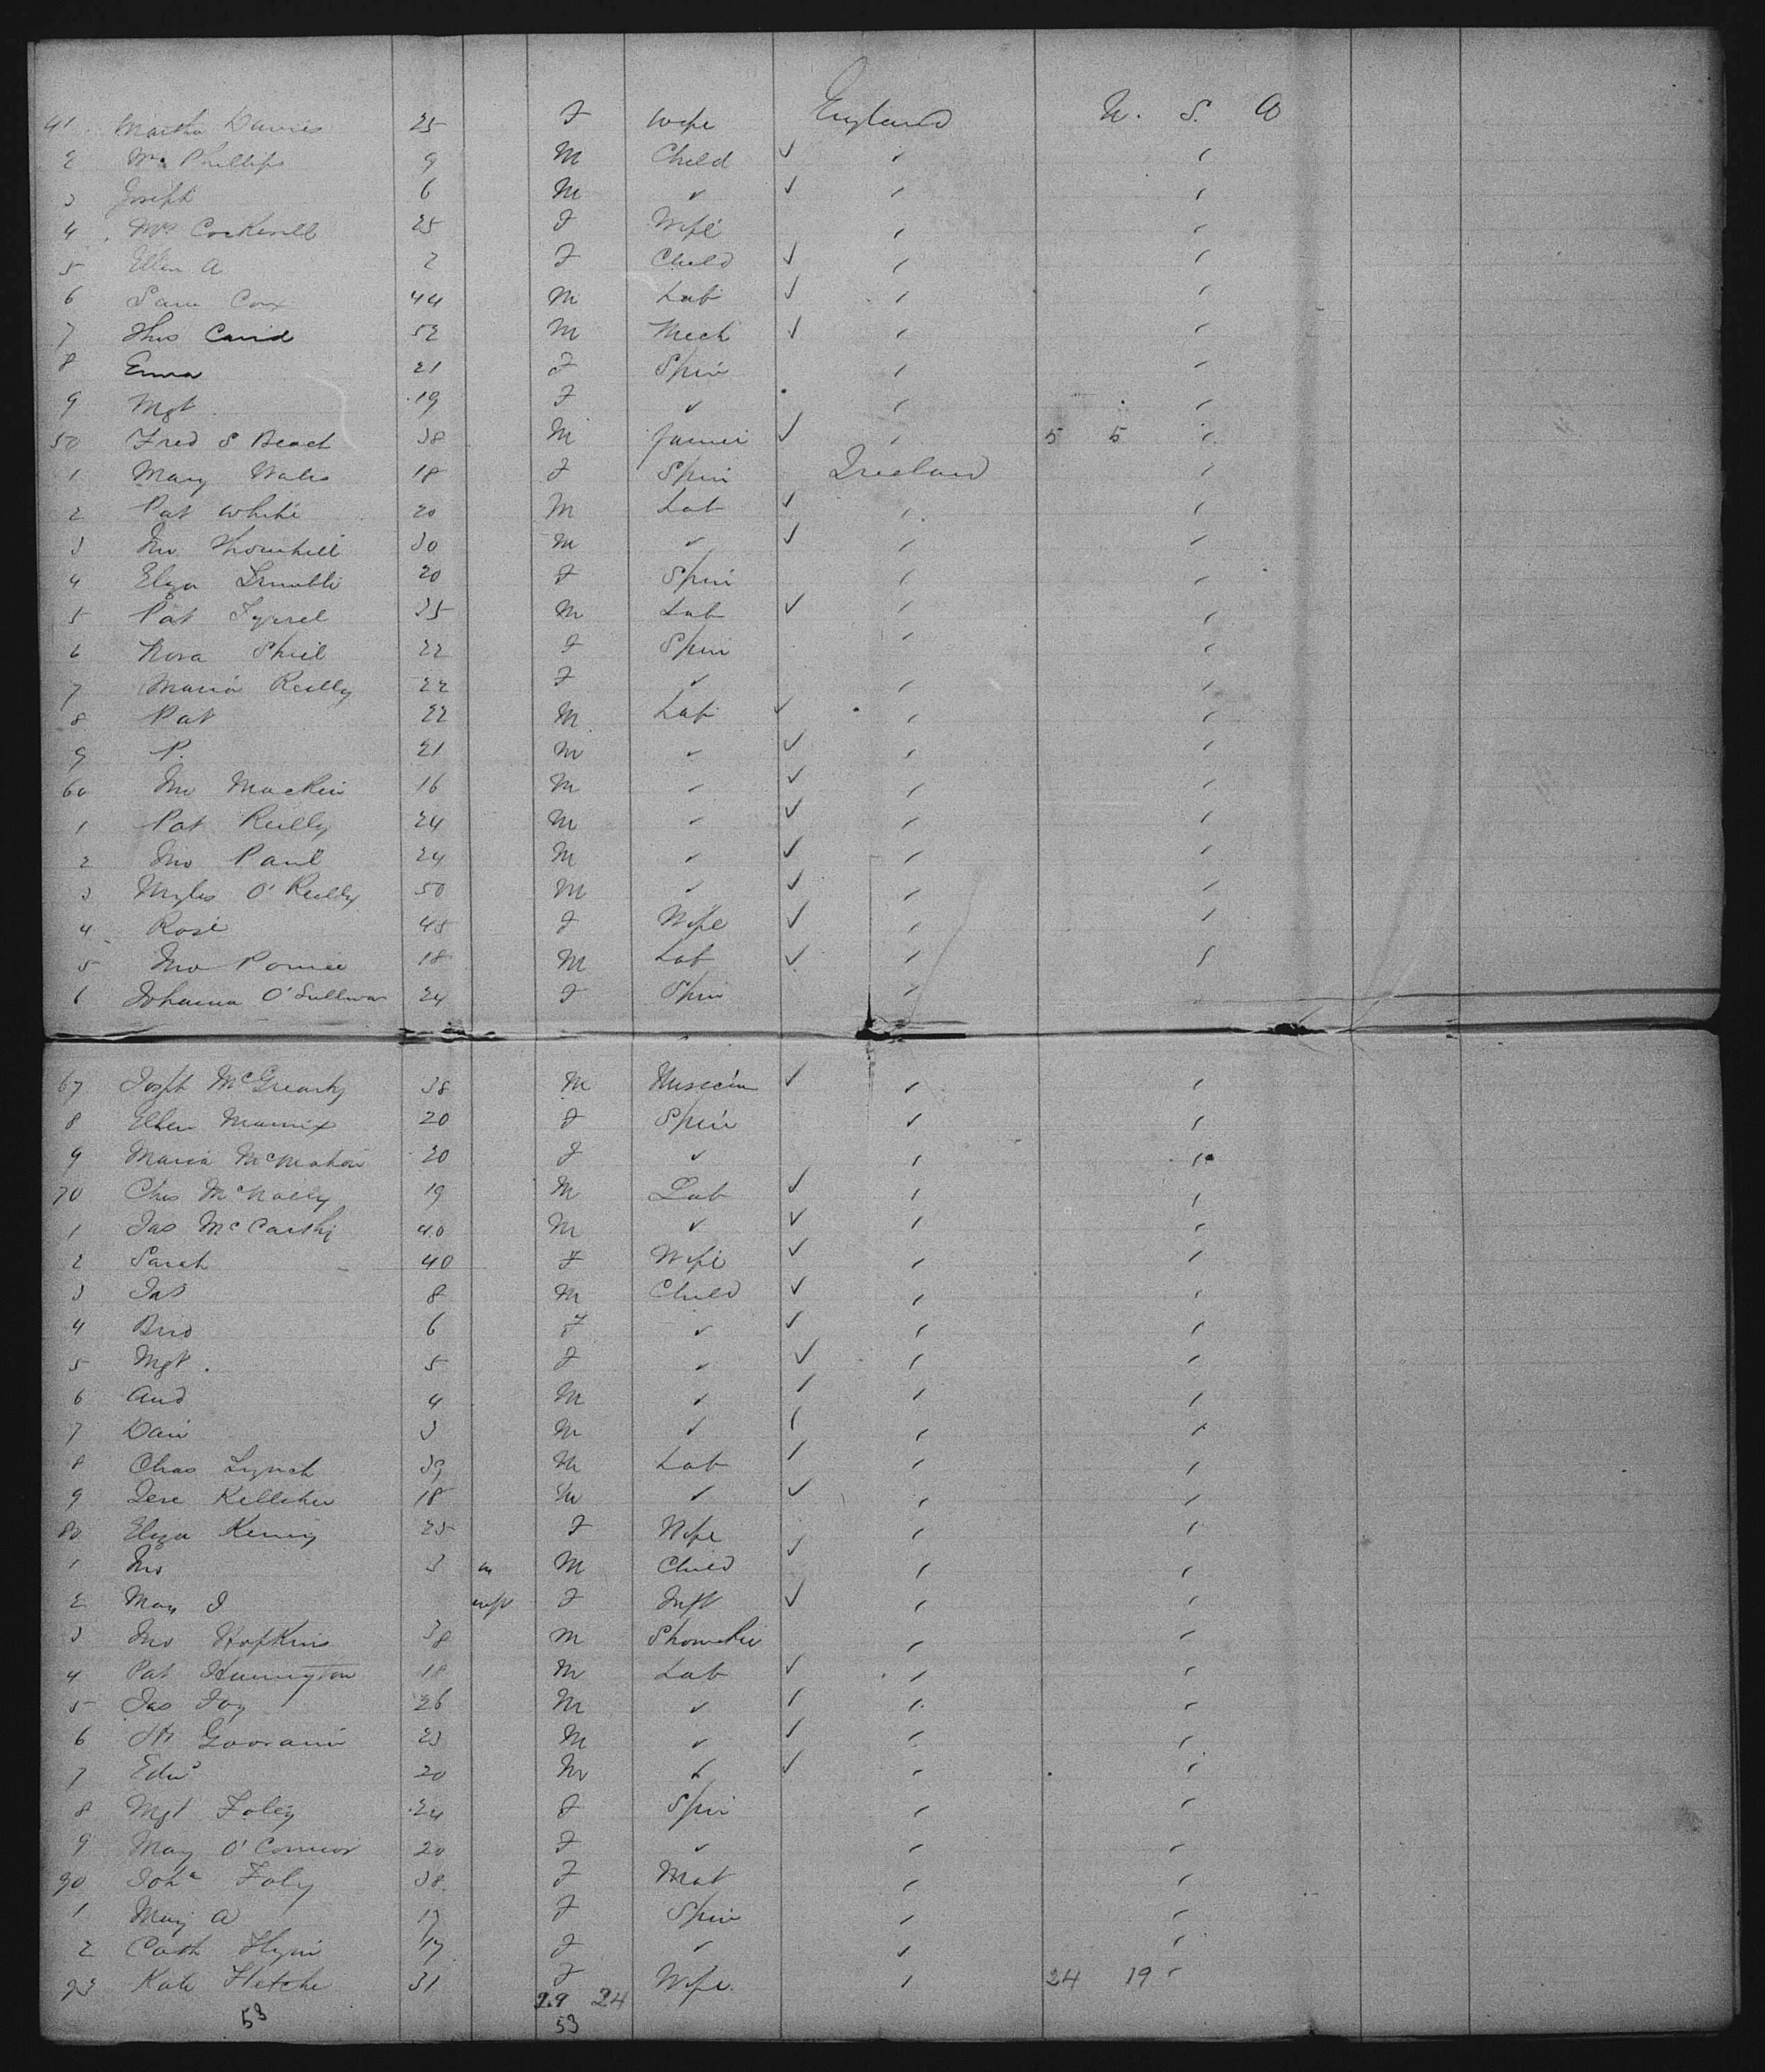 41 Martha Davies 25 F Wife England U. S. A
2 Wm Phillips 9 M Child ✓ " "
3 Joseph 6 M " ✓ " "
4 Mrs Cockerill 25 F Wife " "
5 Ellen A 2 F Child ✓ " "
6 Sam Cox 44 M Lab ✓ " "
7 Thos Caird 52 M Mech ✓ " "
8 Emma 21 F Spin " "
9 Mgt 19 F " " "
50 Fred S Beach 38 M Farmer ✓ " 5 5 "
1 Mary Wales 18 F Spin Ireland "
2 Pat White 20 M Lab ✓ " "
3 Jno Thornhill 30 M " ✓ " "
4 Eliza 20 F Spin " "
5 Pat Tyrrel 35 M Lab ✓ " "
6 Nora Shiel 22 F Spin " "
7 Maria Reilly 22 F " " "
8 Pat 22 M Lab ✓ " "
9 P. 21 M " ✓ " "
60 Jno Mackin 16 M " ✓ " "
1 Pat Reilly 24 M " ✓ " "
2 Jno Paul 24 M " ✓ " "
3 Myles O'Reilly 50 M " ✓ " "
4 Rose 45 F Wife ✓ " "
5 Jno 18 M Lab ✓ " "
6 Johanna O'Sullivan 24 F Spin "
67 Joseph McGrearty 38 M Musician ✓ " "
8 Ellen 20 F Spin " "
9 Maria McMahon 20 F " " "
70 Chris McNally 19 M Lab ✓ " "
1 Jas McCarthy 40 M " ✓ " "
2 Sarah 40 F Wife ✓ " "
3 Jas 8 M Child ✓ " "
4 Brid 6 F " ✓ " "
5 Mgt. 5 F " ✓ " "
6 And 4 M " ✓ " "
7 Dan 3 M " ✓ " "
8 Chas Lynch 39 M Lab ✓ " "
9 Jere Kelleher 18 M " ✓ " "
80 Eliza 25 F Wife " "
1 Jno 3 m M Child ✓ " "
2 Mary J inft F Inft ✓ " "
3 Jno Hopkins 38 M " "
4 Pat Hunnington 18 M Lab ✓ " "
5 Jas Joy 26 M " ✓ " "
6 23 M " ✓ " "
7 Edwd 20 M " ✓ " "
8 Mgt Foley 24 F Spin " "
9 Mary O'Connor 20 F " " "
90 Joha Foly 38 F Mat " "
1 Mary A 17 F Spin " "
2 Cath Flynn 17 F " " "
93 Kate Fletche 31 F Wife " 24 19 "
29 24
53 53